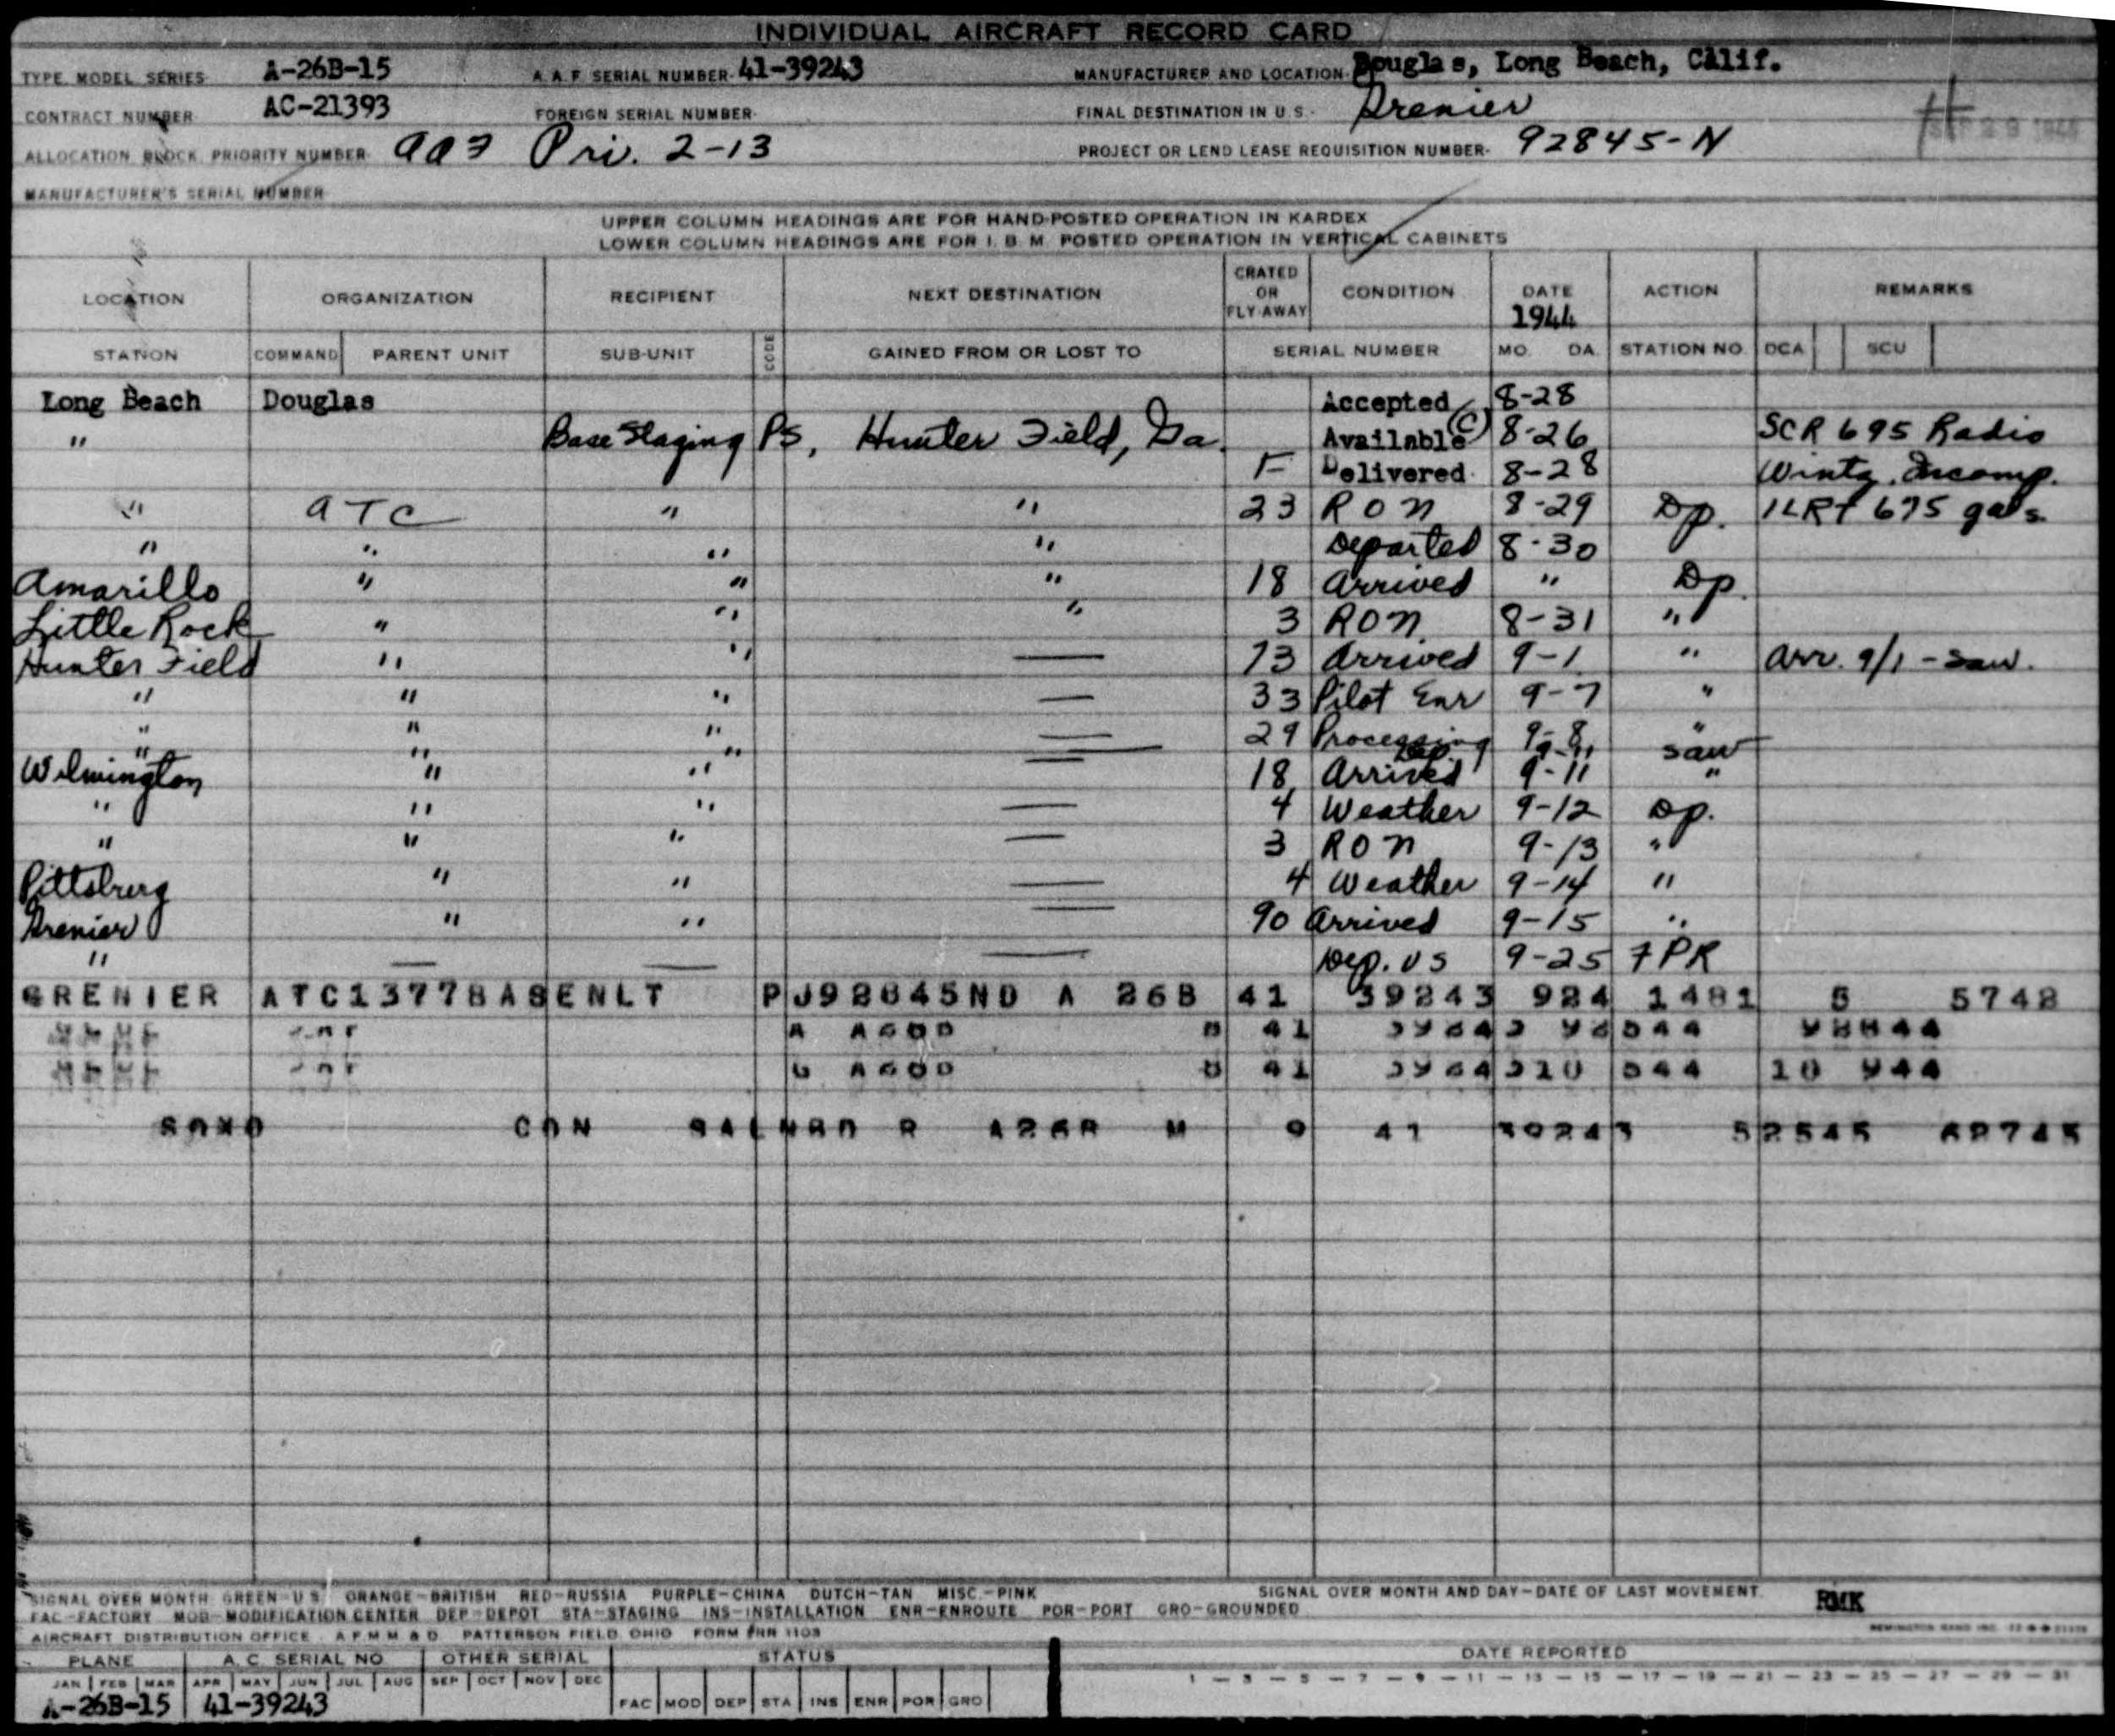 INDIVIDUAL AIRCRAFT RECORD CARD
TYPE, MODEL, SERIES- A-26B-15 A.A.F. SERIAL NUMBER- 41-39243 MANUFACTURER AND LOCATION- Douglas, Long Beach, Calif.
CONTRACT NUMBER- AC-21393 FOREIGN SERIAL NUMBER- FINAL DESTINATION IN U.S.- Grenier
ALLOCATION, BLOCK, PRIORITY NUMBER- Pri. 2-13 PROJECT OR LEND LEASE REQUISITION NUMBER- 92845-N
MANUFACTURER'S SERIAL NUMBER-
UPPER COLUMN HEADINGS ARE FOR HAND-POSTED OPERATION IN KARDEX
LOWER COLUMN HEADINGS ARE FOR I. B. M. POSTED OPERATION IN VERTICAL CABINETS
LOCATION ORGANIZATION RECIPIENT NEXT DESTINATION CRATED OR FLY-AWAY CONDITION DATE 1944 ACTION REMARKS
STATION COMMAND PARENT UNIT SUB-UNIT CODE GAINED FROM OR LOST TO SERIAL NUMBER MO. DA. STATION NO. DCA SCU
Long Beach Douglas Accepted 8-28
" Base Staging Ps, Hunter Field, Ga. Available (C) 8-26 SCR 695 Radio
F Delivered 8-28 Wintz. Incomp.
" ATC " " 23 RON 8-29 Dp. 675 gals
" " " " Departed 8-30
Amarillo " " " 18 Arrived " Dp.
Little Rock " " " 3 RON 8-31 "
Hunter Field " " — 13 Arrived 9-1 " Arr. 9/1 - Saw.
" " " — 33 Pilot Enr 9-7 "
" " " — 29 Processing 9-8 "
" " " — Dep 9-11 Saw
Wilmington " " — 18 Arrived 9-11 "
" " " — 4 Weather 9-12 Dp.
" " " — 3 RON 9-13 "
Pittsburg " " — 4 Weather 9-14 "
Grenier " " — 90 Arrived 9-15 "
" — — — Dep. US 9-25 7PR
GRENIER ATC1377BASENLT PJ92845ND A 26B 41 39243 924 1481 5 5742
41
41
41 39243 52545 62745
SIGNAL OVER MONTH GREEN-U S ORANGE-BRITISH RED-RUSSIA PURPLE-CHINA DUTCH-TAN MISC.-PINK SIGNAL OVER MONTH AND DAY-DATE OF LAST MOVEMENT. RMK
FAC-FACTORY MOD-MODIFICATION CENTER DEP-DEPOT STA-STAGING INS-INSTALLATION ENR-ENROUTE POR-PORT GRO-GROUNDED
AIRCRAFT DISTRIBUTION OFFICE. A F M M & D PATTERSON FIELD, OHIO FORM 1103
PLANE A. C. SERIAL NO OTHER SERIAL STATUS DATE REPORTED
JAN FEB MAR APR MAY JUN JUL AUG SEP OCT NOV DEC 1 - 3 - 5 - 7 - 9 - 11 - 13 - 15 - 17 - 19 - 21 - 23 - 25 - 27 - 29 - 31
A-26B-15 41-39243 FAC MOD DEP STA INS ENR POR GRO